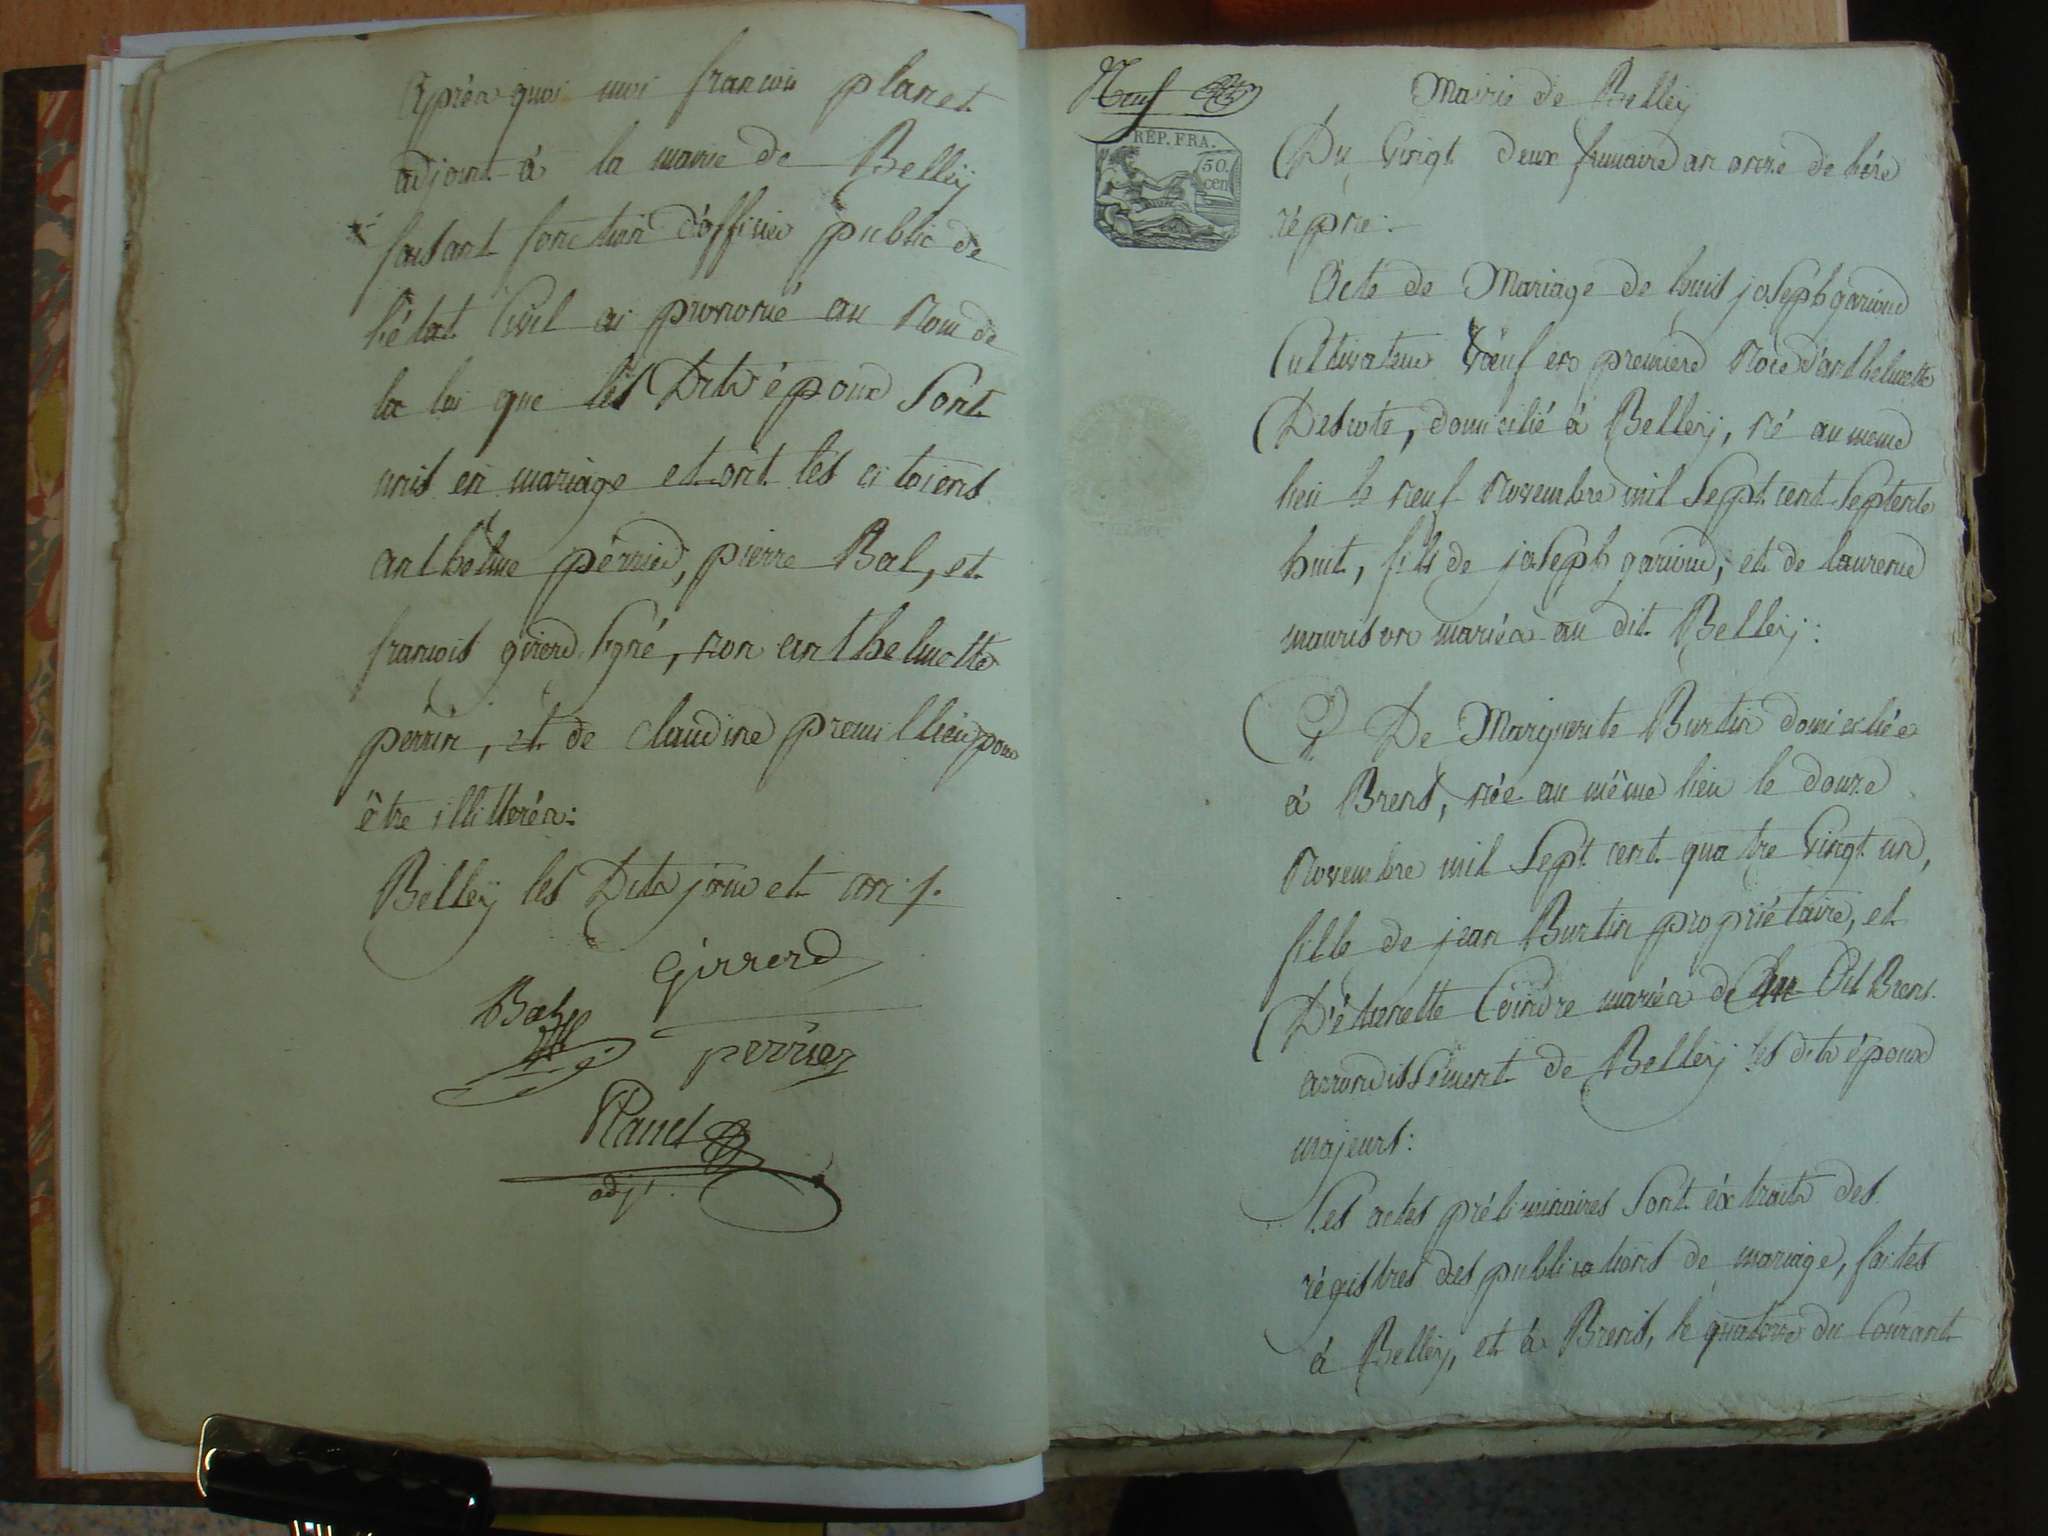 Après quoi moi francois planet
adjoint à la mairie de Belleÿ
faisant fonction d'officier public de
l'état Civil ai prononcé au Nom de
la loi que les Dits époux Sont
unis en mariage et ont les citoiens
anthelme perrier, pierre Bal, et
françois girerd signé, non anthelmette
perrin, et de claudine premillieu pour
être illittérés:
Belleÿ les Dits jour et an ;/.
Girrerd
Bal
perrier
Planet
adj.t
Neuf
RÉP. FRA.
50.
cen
Mairie de Belleÿ
Du Vingt deux frimaire an onze de l'ére
répne:
Acte de Mariage de Louis joseph garioud
Cultivateur Vœuf en première Noce d'anthelmette
Descote, domicilié à Belleÿ, né au meme
lieu le neuf Novembre mil Sept cent Septente
huit, fils de joseph garioud, et de laurence
maurison mariés au dit Belleÿ:
Et De Marguerite Burtin domiciliée
à Brens, née au même lieu le douze
Novembre mil Sept cent quatre Vingt un,
fille de jean Burtin propriétaire, et
D'étiennette Coindre mariés Dit Brens.
arrondissement de Belleÿ les dits époux
majeurs:
Les actes préliminaires Sont éxtraits des
régistres des publications de mariage, faites
à Belleÿ, et à Brens, le quatorze du Courant